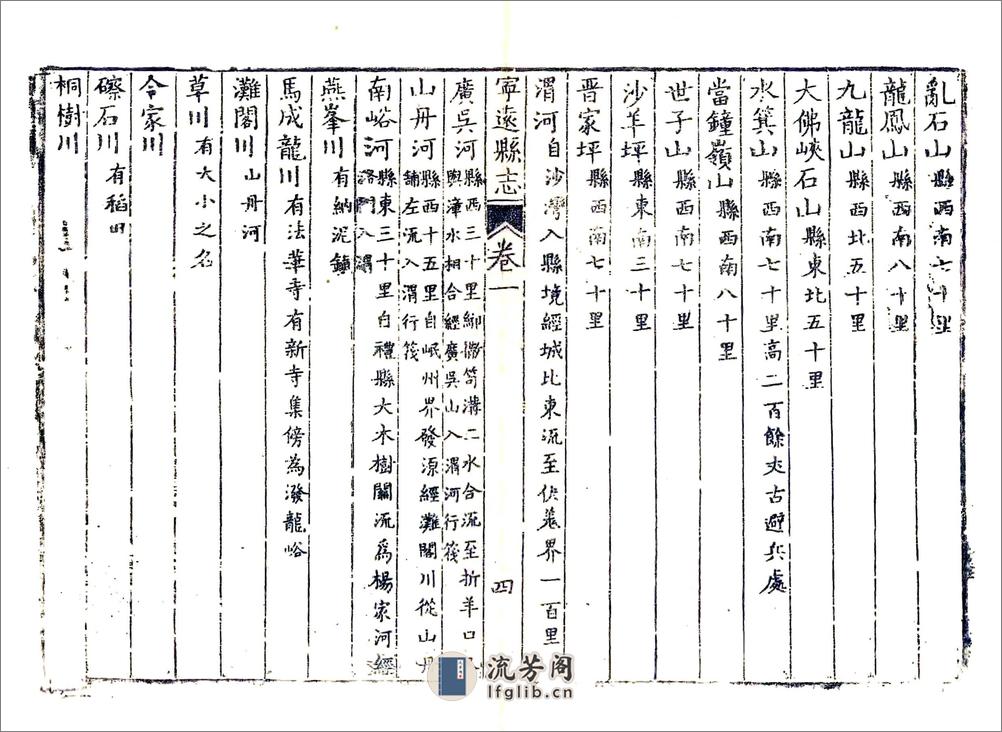 亂石山縣西南六十里
龍鳳山縣西南八十里
九龍山縣西北五十里
大佛峽石山縣東北五十里
水簑山縣西南七十里高二百餘丈古避兵處
當鐘嶺山縣西南八十里
世子山縣西南七十里
沙羊坪縣東南三十里
晋家坪縣西南七十里
渭河自沙灣入縣境經城北東流至伏羗界一百里
寧遠縣志 卷一 四
廣吳河縣西三十里 溝二水合流至折羊口
與漳水相合經廣吳山入渭河行筏
山丹河縣西十五里自岷州界發源經灘閣川從山丹
鋪左流入渭行筏
南峪河縣東三十里自禮縣大木樹關流爲楊家河經
洛門入渭
燕峯川有納泥鎮
馬成龍川有法華寺有新寺集傍為潑龍峪
灘閣川山丹河
草川有大小之名
令家川
礤石川有稻田
桐樹川
流芳阁
lfglib.cn